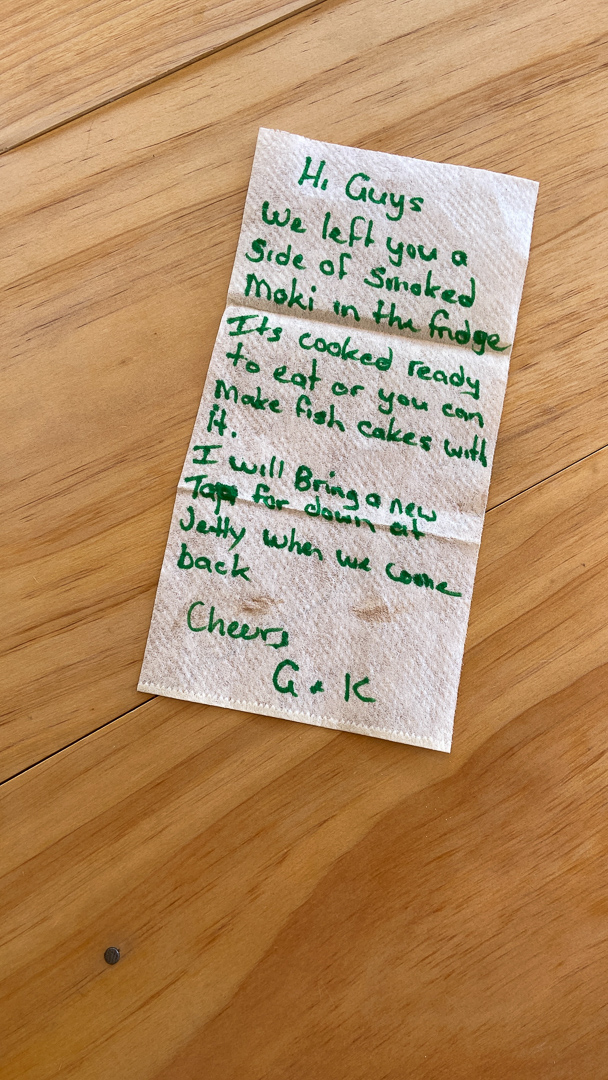 Hi Guys
We left you a
Side of Smoked
Moki in the fridge
Its cooked ready
to eat or you can
Make fish cakes with
it.
I will Bring a new
Tap for down at
Jetty when we come
back
Cheers
G + K